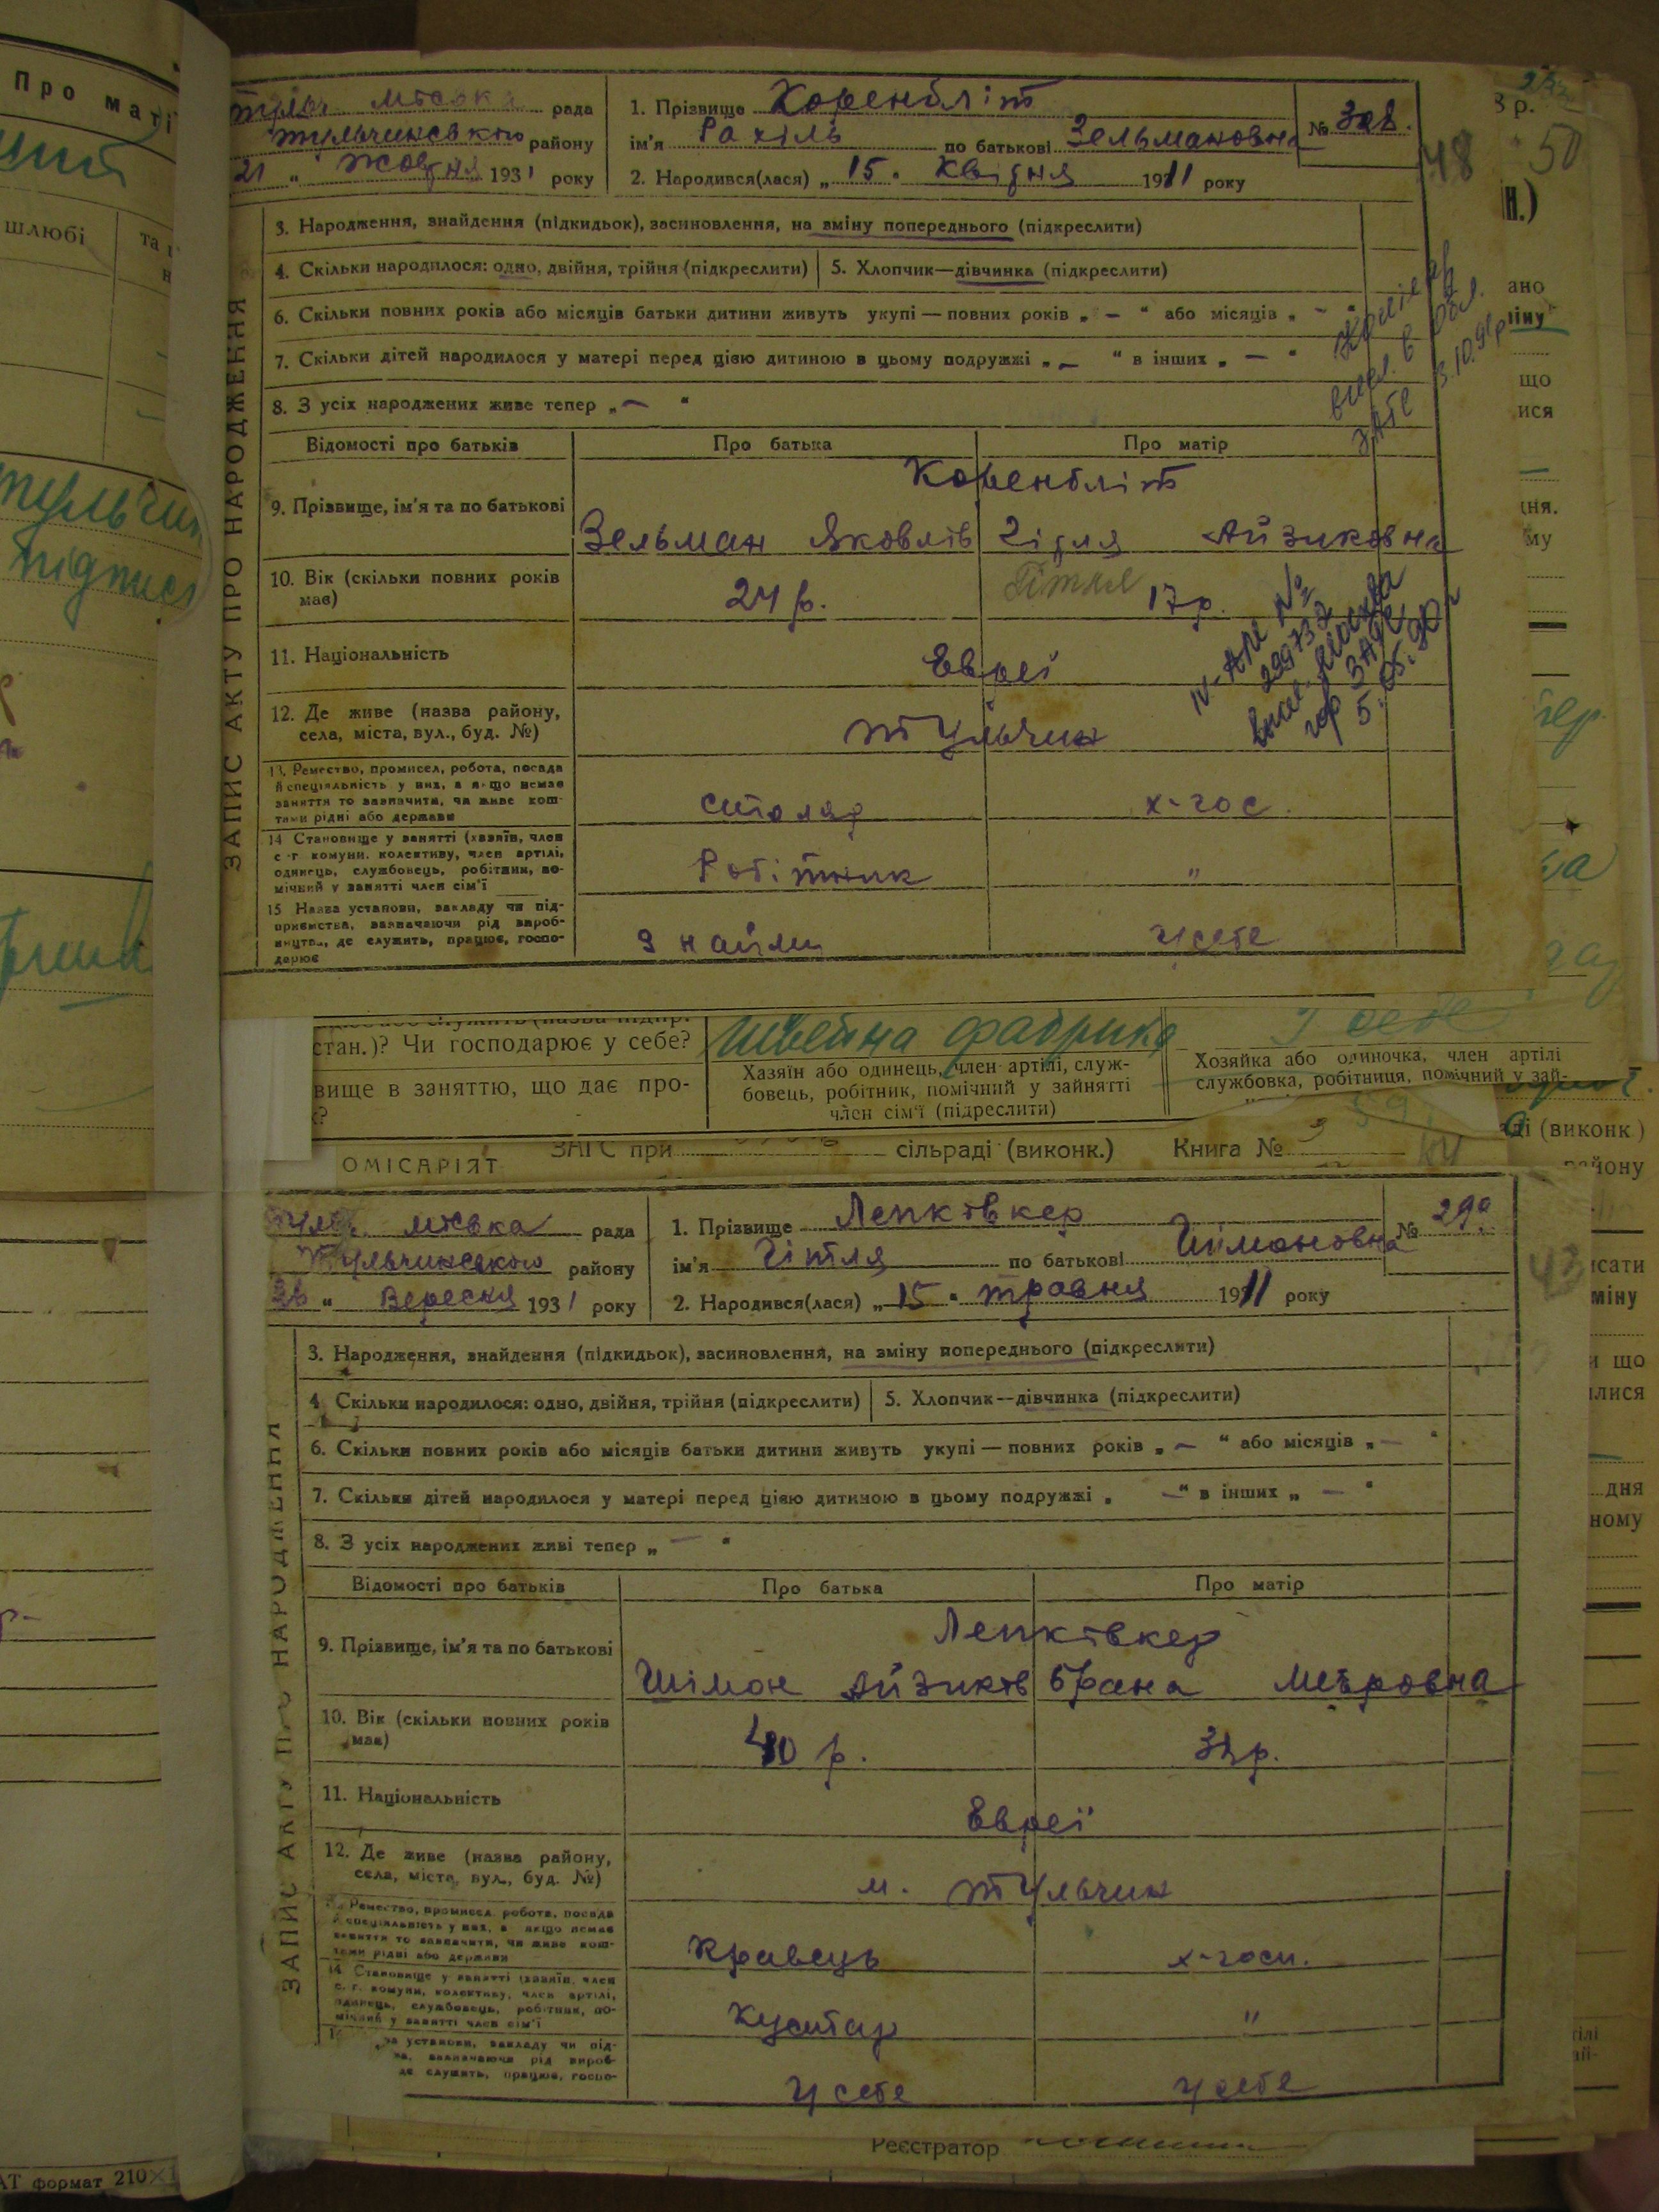 Про маті
шлюбі
та
Тульчин
підпис
АТ формат 210×
ЗАПИС АКТУ ПРО НАРОДЖЕННЯ
Тульч. міська рада
Тульчинського району
21 " Жовтня 1931 року
1. Прізвище Коренбліт
ім'я Рахіль по батькові Зельмановна
№ 308.
2. Народився(лася) „ 15 " Квітня 1911 року
48
50
3. Народження, знайдення (підкидьок), засиновлення, на зміну попереднього (підкреслити)
4. Скільки народилося: одно, двійня, трійня (підкреслити)
5. Хлопчик—дівчинка (підкреслити)
6. Скільки повних років або місяців батьки дитини живуть укупі — повних років „ — " або місяців „ — "
7. Скільки дітей народилося у матері перед цією дитиною в цьому подружжі „ — " в інших „ — "
8. З усіх народжених живе тепер „ — "
Відомості про батьків
Про батька
Про матір
9. Прізвище, ім'я та по батькові
Коренбліт
Зельман Яковлів
Гідля Айзиковна
Гітля
10. Вік (скільки повних років має)
24 р.
17 р.
11. Національність
Евреі
IV-АП №
299732
12. Де живе (назва району, села, міста, вул., буд. №)
Тульчин
13. Ремество, промисел, робота, посада
й спеціяльність у них, а якщо немає
заняття то зазначити, чи живе кош-
тами рідні або держави
столяр
х-гос.
14 Становище у занятті (хазяїн, член
с-г комуни, колективу, член артілі,
одинець, службовець, робітник, по-
мічний у занятті член сім'ї
Робітник
"
15 Назва установи, закладу чи під-
приємства, зазначаючи рід вироб-
ництва, де служить, працює, госпо-
дарює
З найми
У себе
стан.)? Чи господарює у себе?
Швейна фабрика
У себе
вище в заняттю, що дає про-
Хазяїн або одинець, член артілі, служ-
бовець, робітник, помічний у зайнятті
член сім'ї (підреслити)
Хозяйка або одиночка, член артілі
службовка, робітниця, помічний у зай-
ОМІСАРІЯТ
ЗАГС при сільраді (виконк.) Книга №
ді (виконк.)
йону
ЗАПИС АКТУ ПРО НАРОДЖЕННЯ
Тульч. міська рада
Тульчинського району
26 " Вересня 1931 року
1. Прізвище Лепківкер
ім'я Гітля по батькові Шимоновна
№ 299
2. Народився(лася) „ 15 " травня 1911 року
43
3. Народження, знайдення (підкидьок), засиновлення, на зміну попереднього (підкреслити)
4 Скільки народилося: одно, двійня, трійня (підкреслити)
5. Хлопчик—дівчинка (підкреслити)
6. Скільки повних років або місяців батьки дитини живуть укупі — повних років „ — " або місяців „ — "
7. Скільки дітей народилося у матері перед цією дитиною в цьому подружжі „ — " в інших „ — "
8. З усіх народжених живі тепер „ — "
Відомості про батьків
Про батька
Про матір
9. Прізвище, ім'я та по батькові
Лепківкер
Шімон Айзиків
Брана Меєровна
10. Вік (скільки повних років має)
40 р.
11. Національність
Евреї
12. Де живе (назва району, села, міста, вул., буд. №)
м. Тульчин
Ремество, промисел, робота, посада
й спеціяльність у них, а якщо немає
заняття то зазначити, чи живе кош-
тами рідні або держави
Кравець
х-госп.
14 Становище у занятті (хазяїн, член
с. г. комуни, колективу, член артілі,
одинець, службовець, робітник, по-
мічний у занятті член сім'ї
Кустар
"
установи, закладу чи під-
зазначаючи рід вироб-
де служить, працює, госпо-
у себе
у себе
Реєстратор